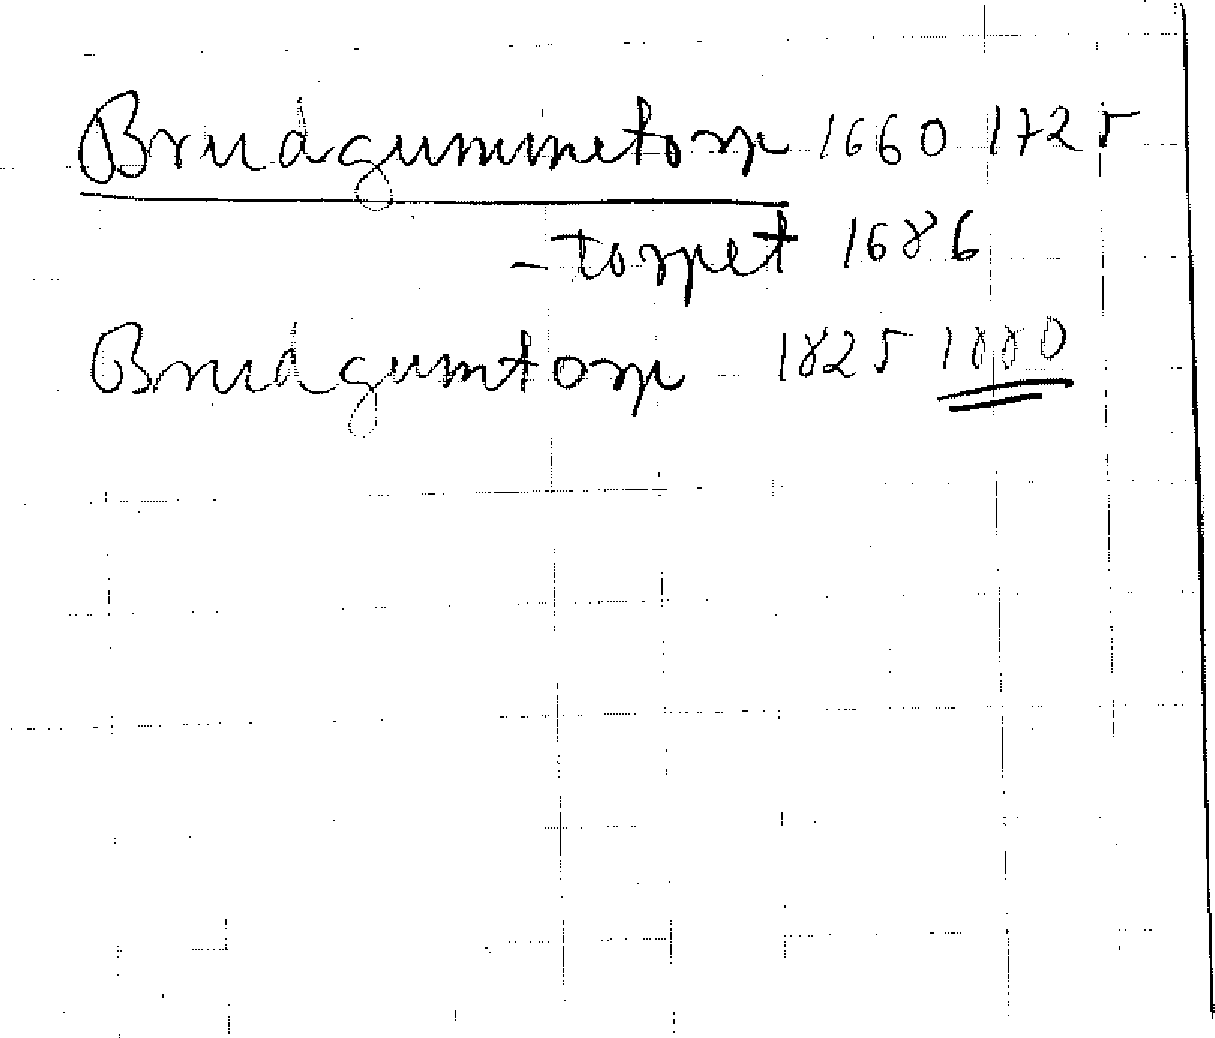 Brudgummetorp 1660 1725
- torpet 1686
Brudgumtorp 1825 1880